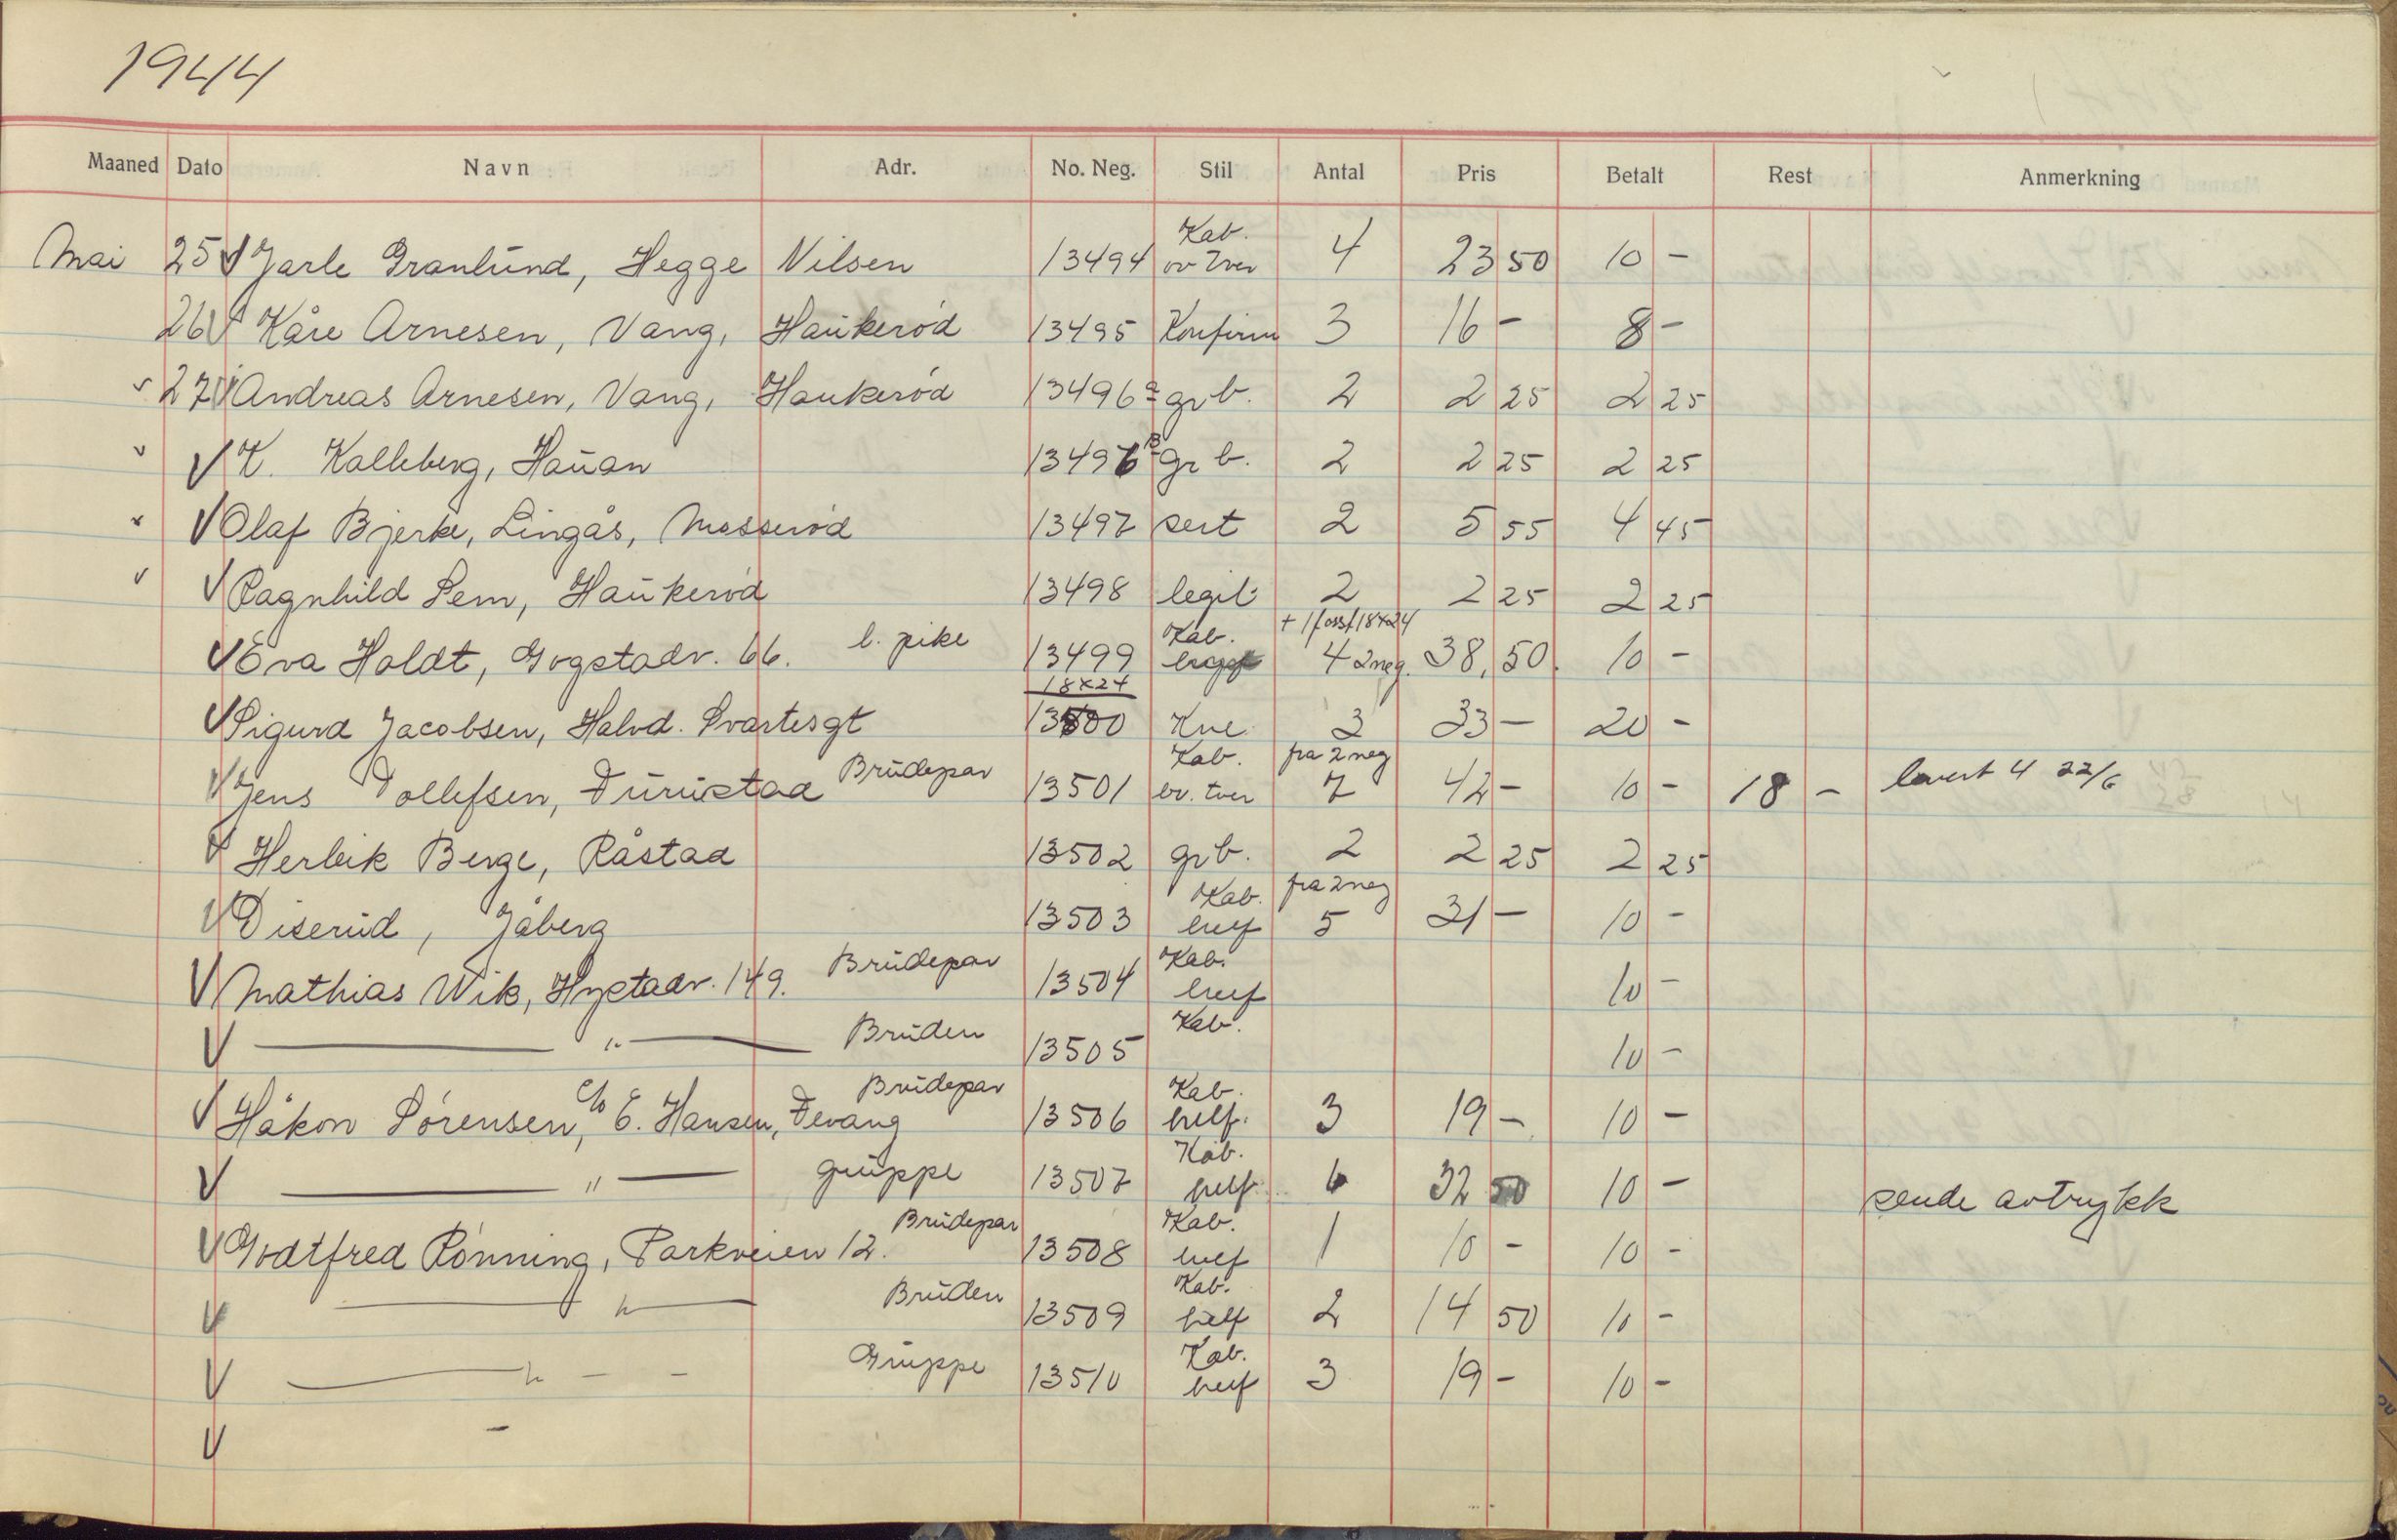 1944
Maaned Dato Navn Adr. No. Neg. Stil Antal Pris Betalt Rest Anmerkning
Mai 25 V Jarle Granlund, Hegge Nilsen 13494 Kab. 4 23 50 10 -
26 V Kåre Arnesen, Vang, Haukerød 13495 Konfirm 3 16 - 8 -
" 27 V Andreas Arnesen, Vang, Haukerød 13496 a grb. 2 2 25 2 25
" V K. Kalleberg, Hauan 13496 B gr b. 2 2 25 2 25
" V Olaf Bjerke, Lingås, Messerød 13497 sert 2 5 55 4 45
" V Ragnhild Sem, Haukerød 13498 legit 2 2 25 2 25
V Eva Holdt, Gogstadv. 66. l. pike 13499 Kab. + 1 18x24 4 2 neg. 38,50. 10 -
18x24
V Sigurd Jacobsen, Halvd. Svartesgt 13500 Kne 3 33 - 20 -
V Jens Tollefsen, Furustad Brudepar 13501 Kab. br. tver fra 2 neg 7 42 - 10 - 18 - levert 4 22/6
V Herleik Berge, Råstad 13502 grb. 2 2 25 2 25
V Diserud, Jåberg 13503 Kab. helf fra 2 neg 5 31 - 10 -
V Mathias Wik, Hystadv. 149. Brudepar 13504 Kab. helf 10 -
V — " — Bruden 13505 Kab. 10 -
V Håkon Sørensen, c/o E. Hansen, Fevang Brudepar 13506 Kab. helf. 3 19 - 10 -
V — " — gruppe 13507 Kab. helf 6 32 50 10 - sende avtrykk
V Godtfred Rønning, Parkveien 12. Brudepar 13508 Kab. helf 1 10 - 10 -
V — " — Bruden 13509 Kab. helf 2 14 50 10 -
V — " — - Gruppe 13510 Kab. helf 3 19 - 10 -
V -